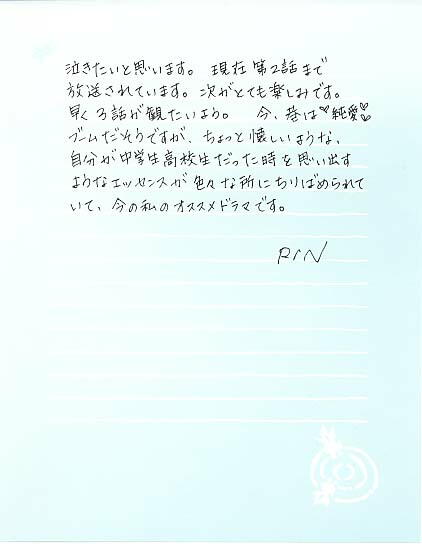 泣きたいと思います。 現在 第2話まで
放送されています。次がとても楽しみです。
早く 3話が観たいよう。 今、巷は♥純愛♥
ブームだそうですが、ちょっと懐しいような、
自分が中学生高校生だった時を思い出す
ようなエッセンスが色々な所にちりばめられて
いて、今の私のオススメドラマです。
RIN